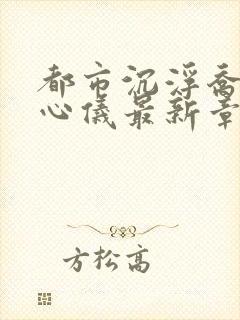 都市沉浮乔
心仪最新章
方松高